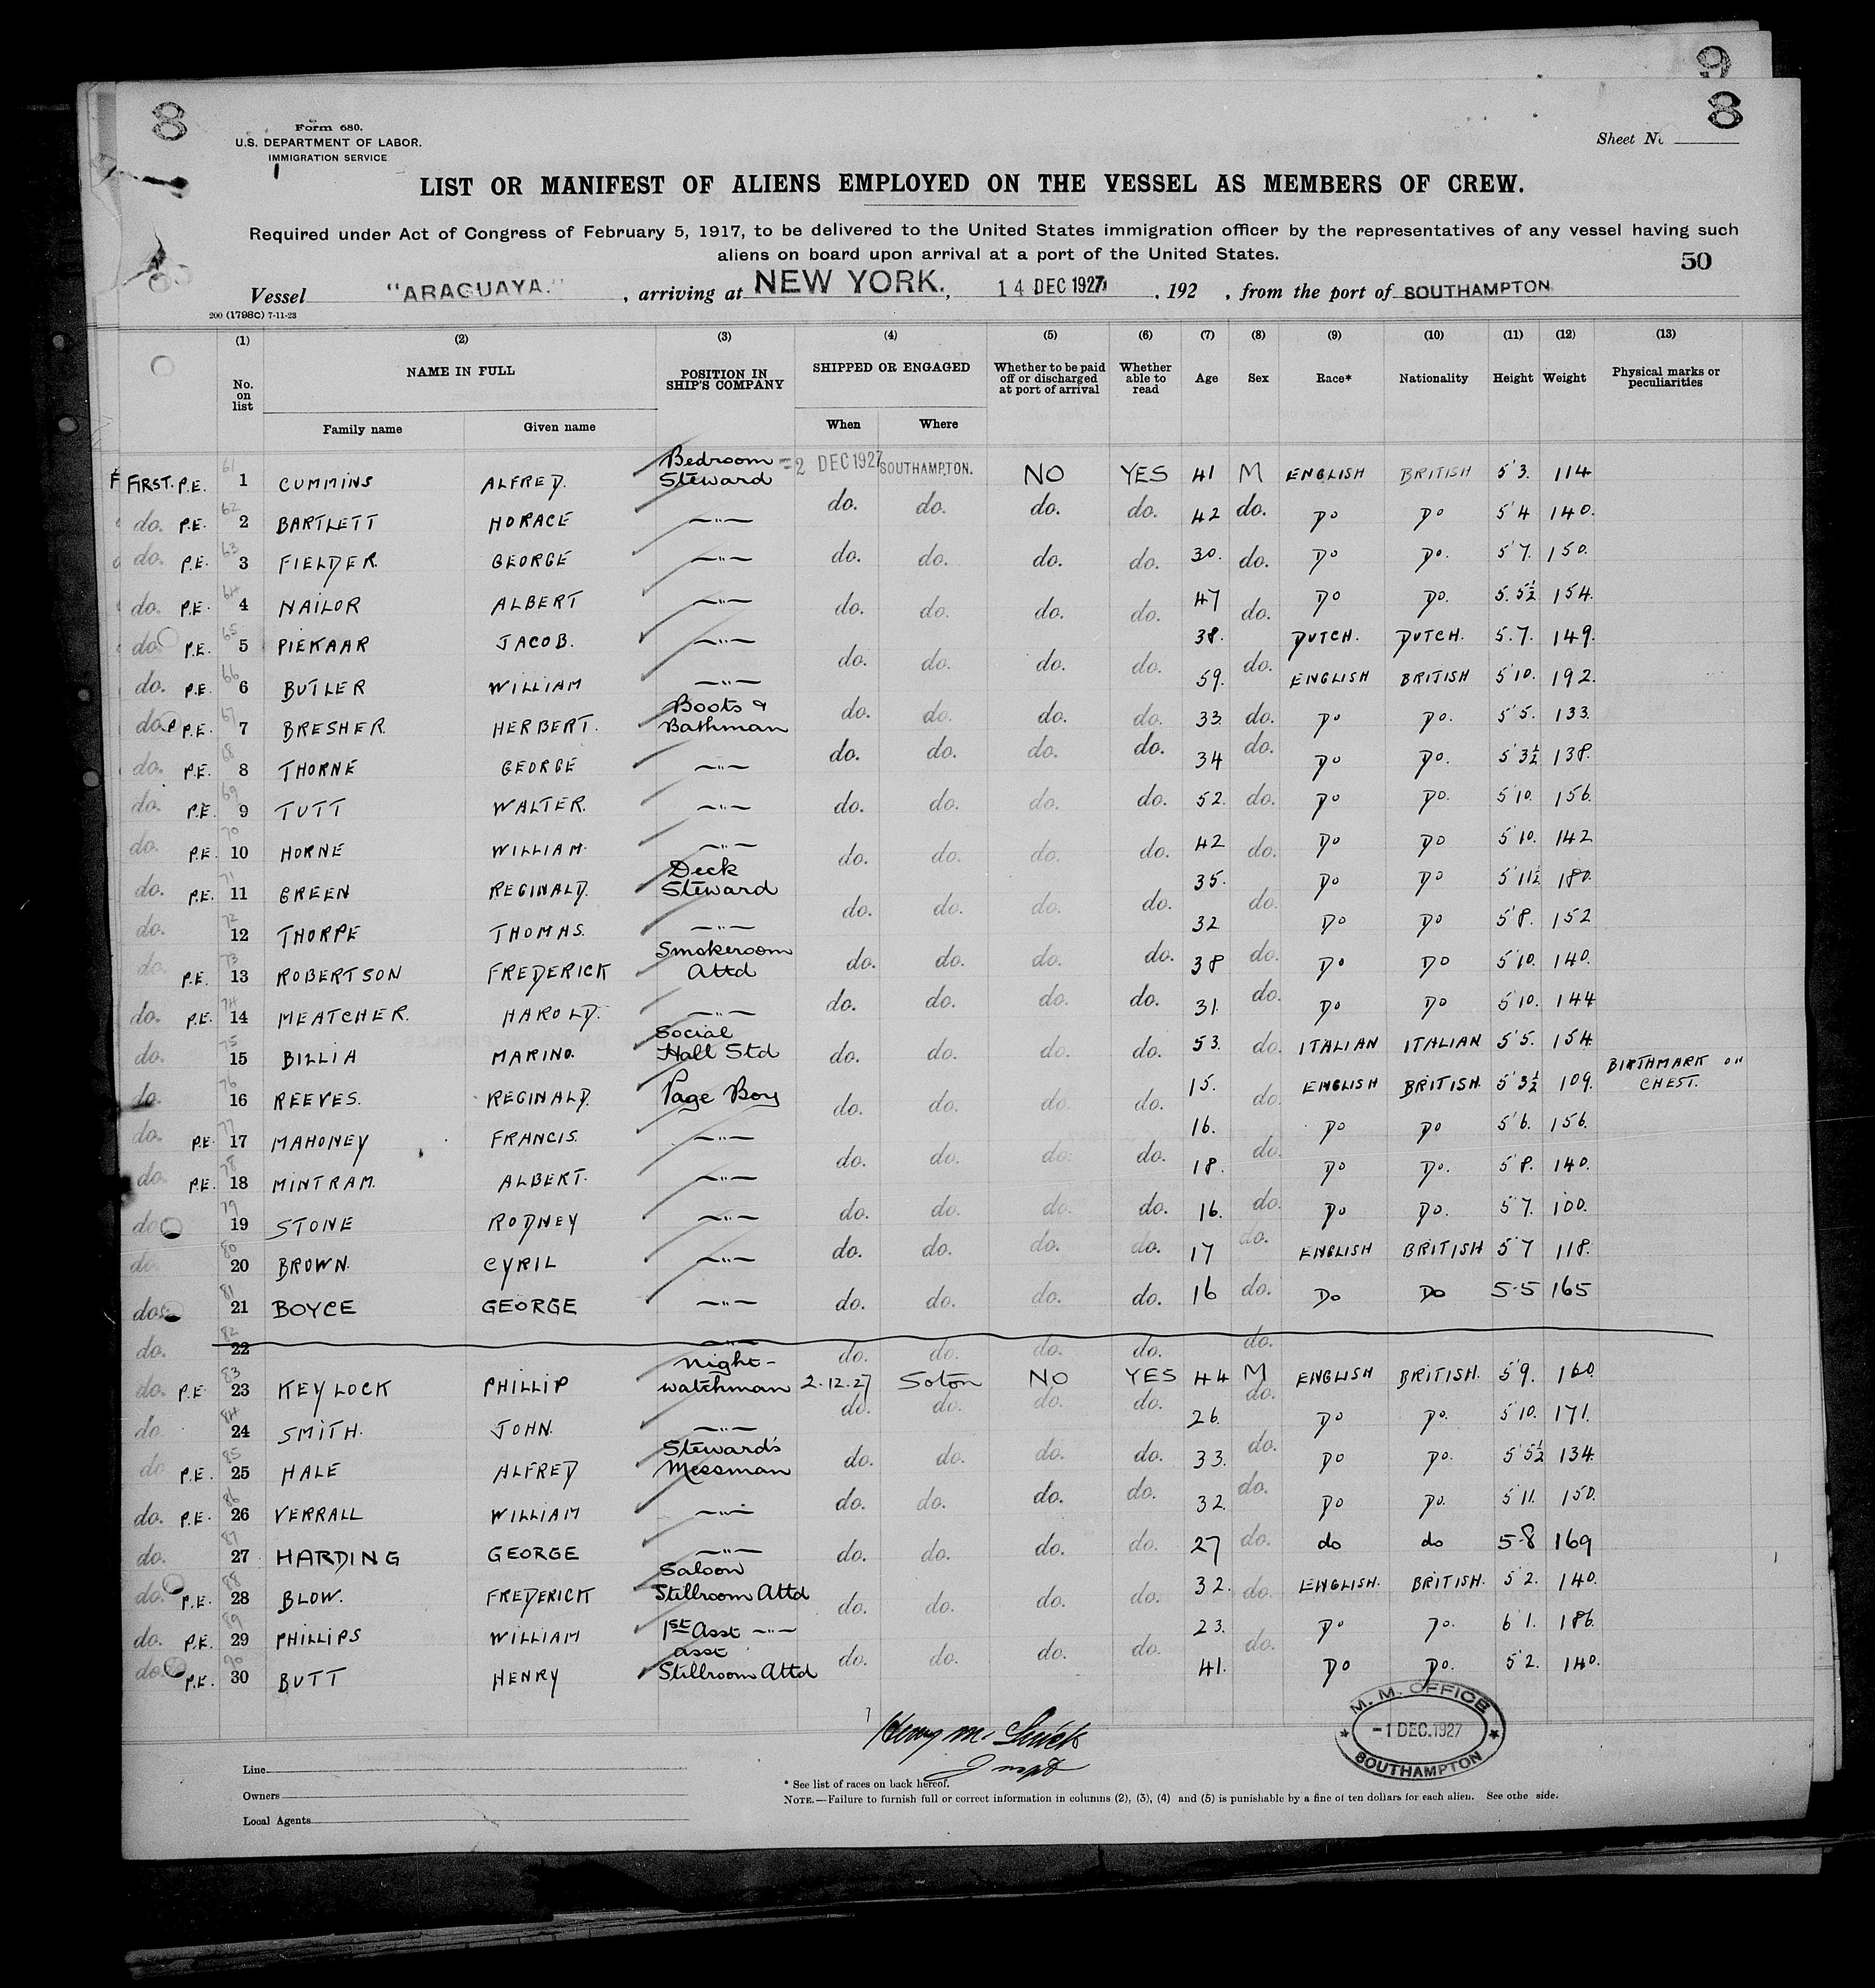 9
8
8
Form 680.
U.S. DEPARTMENT OF LABOR.
IMMIGRATION SERVICE
Sheet No
LIST OR MANIFEST OF ALIENS EMPLOYED ON THE VESSEL AS MEMBERS OF CREW.
Required under Act of Congress of February 5, 1917, to be delivered to the United States immigration officer by the representatives of any vessel having such
aliens on board upon arrival at a port of the United States.
50
Vessel "ARAGUAYA." , arriving at NEW YORK. , 14 DEC 1927 , 192 , from the port of SOUTHAMPTON
200 (1798C) 7-11-23
(1) (2) (3) (4) (5) (6) (7) (8) (9) (10) (11) (12) (13)
No. on list NAME IN FULL POSITION IN SHIP'S COMPANY SHIPPED OR ENGAGED Whether to be paid off or discharged at port of arrival Whether able to read Age Sex Race* Nationality Height Weight Physical marks or peculiarities
Family name Given name When Where
FIRST. P.E. 61 1 CUMMINS ALFRED. Bedroom Steward =2 DEC 1927 SOUTHAMPTON. NO YES 41 M ENGLISH BRITISH 5'3. 114
do. P.E. 62 2 BARTLETT HORACE —"— do. do. do. do. 42 do. DO DO 5'4 140.
do. P.E. 63 3 FIELDER. GEORGE —"— do. do. do. do. 30. do. DO DO. 5'7. 150.
do. P.E. 64 4 NAILOR ALBERT —"— do. do. do. do. 47 do. DO DO. 5.5½ 154.
do. P.E. 65 5 PIEKAAR JACOB. —"— do. do. do. do. 38. do. DUTCH. DUTCH. 5.7. 149.
do. P.E. 66 6 BUTLER WILLIAM —"— 59. ENGLISH BRITISH 5'10. 192.
do. P.E. 67 7 BRESHER. HERBERT. Boots & Bathman do. do. do. do. 33. do. DO DO. 5'5. 133.
do. P.E. 68 8 THORNE GEORGE —"— do. do. do. do. 34 do. DO DO. 5'3½ 138.
do. P.E. 69 9 TUTT WALTER. —"— do. do. do. do. 52. do. DO DO. 5'10. 156.
do. P.E. 70 10 HORNE WILLIAM. —"— do. do. do. do. 42 do. DO DO 5'10. 142
do. P.E. 71 11 GREEN REGINALD. Deck Steward 35. DO DO 5'11½ 180.
do. 72 12 THORPE THOMAS. —"— do. do. do. do. 32 do. DO DO 5'8. 152
do. P.E. 73 13 ROBERTSON FREDERICK Smokeroom Attd do. do. do. do. 38 do. DO DO 5'10. 140.
do. P.E. 74 14 MEATCHER. HAROLD. —"— do. do. do. do. 31. do. DO DO 5'10. 144
do. 75 15 BILLIA MARINO. Social Hall Std do. do. do. do. 53. do. ITALIAN ITALIAN 5'5. 154.
do. 76 16 REEVES. REGINALD. Page Boy do. do. do. do. 15. do. ENGLISH BRITISH. 5'3½ 109. BIRTHMARK ON CHEST.
do. P.E. 77 17 MAHONEY FRANCIS. —"— 16. DO DO 5'6. 156.
do. P.E. 78 18 MINTRAM. ALBERT. —"— do. do. do. do. 18. do. DO DO. 5'8. 140.
do. 79 19 STONE RODNEY —"— do. do. do. do. 16. do. DO DO. 5'7. 100.
do. 80 20 BROWN. CYRIL —"— do. do. do. do. 17 do. ENGLISH BRITISH 5'7 118.
do. 81 21 BOYCE GEORGE —"— do. do. do. do. 16 do. DO DO 5-5 165
do. 82 22 —"— do. do. do. do. do.
do. P.E. 83 23 KEYLOCK PHILLIP Night-watchman 2.12.27 Soton NO YES 44 M ENGLISH BRITISH. 5'9. 160.
do. 84 24 SMITH. JOHN. —"— do. do. do. do. 26. do. DO DO. 5'10. 171.
do P.E. 85 25 HALE ALFRED Steward's Messman do. do. do. do. 33. do. DO DO. 5'5½ 134.
do. P.E. 86 26 VERRALL WILLIAM —"— do. do. do. do. 32. do. DO DO. 5'11. 150.
do. 87 27 HARDING GEORGE —"— do. do. do. do. 27 do. do do 5-8 169
do. P.E. 88 28 BLOW. FREDERICK Saloon Stillroom Attd do. do. do. do. 32. do. ENGLISH. BRITISH. 5'2. 140.
do. P.E. 89 29 PHILLIPS WILLIAM 1st Asst —"— 23. DO DO. 6'1. 186.
do. P.E. 90 30 BUTT HENRY Asst Stillroom Attd do. do. do. do. 41. do. DO DO. 5'2. 140.
M. M. OFFICE
-1 DEC. 1927
SOUTHAMPTON
Line
Owners
Local Agents
* See list of races on back hereof.
NOTE.—Failure to furnish full or correct information in columns (2), (3), (4) and (5) is punishable by a fine of ten dollars for each alien. See othe side.